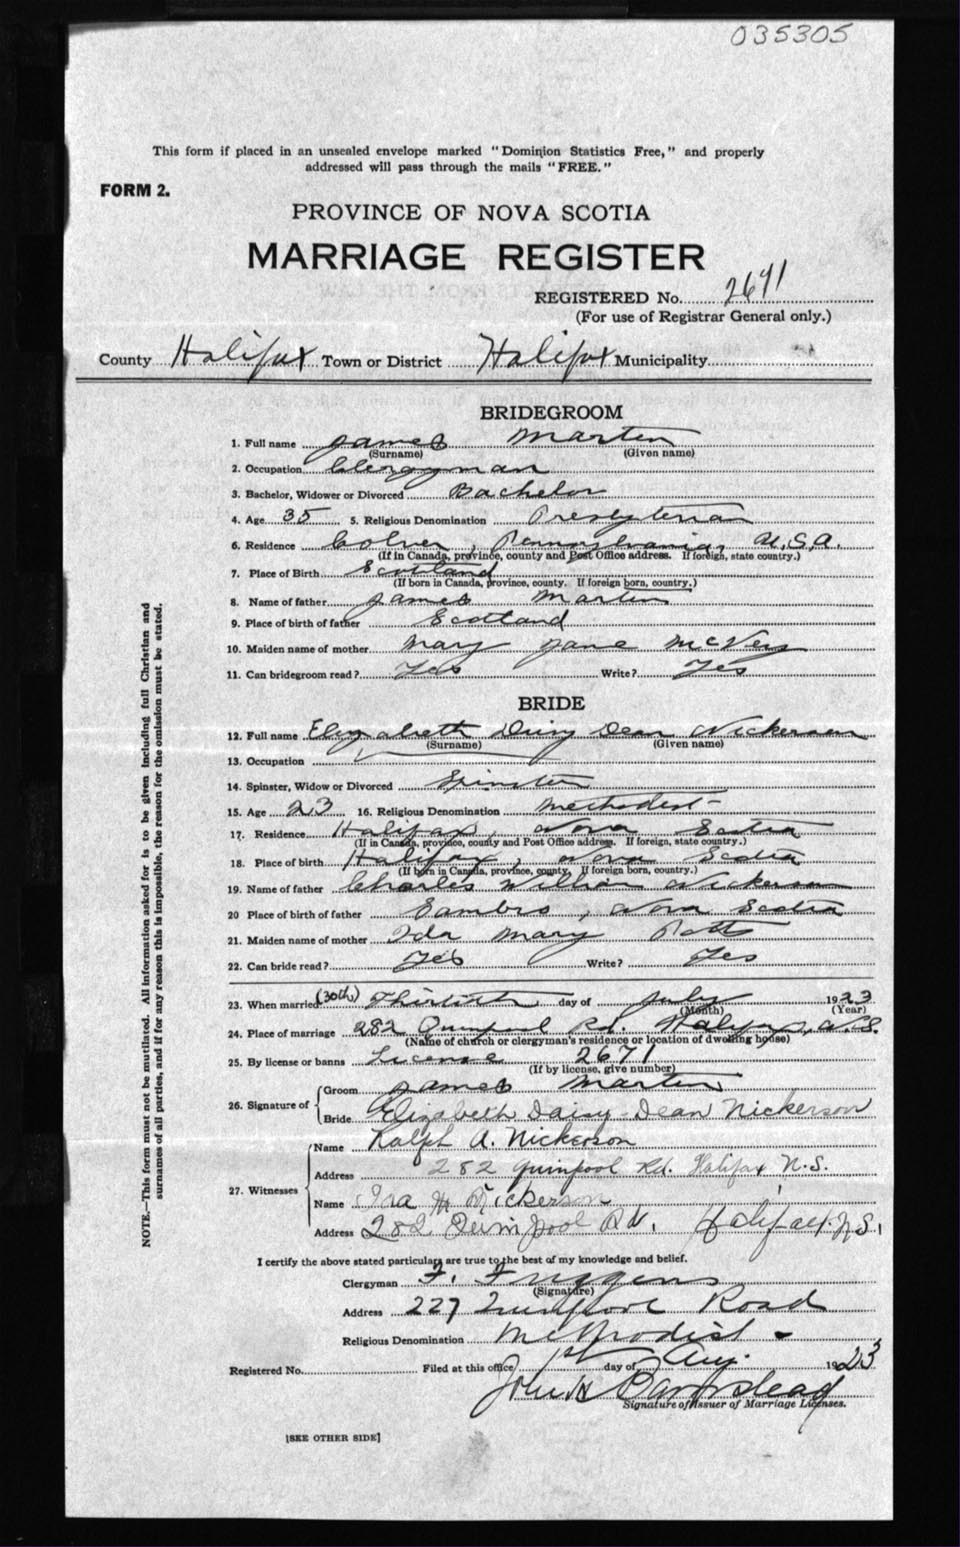 035305
This form if placed in an unsealed envelope marked "Dominion Statistics Free," and properly
addressed will pass through the mails "FREE."
FORM 2.
PROVINCE OF NOVA SCOTIA
MARRIAGE REGISTER
REGISTERED No. 2671
(For use of Registrar General only.)
County Halifax Town or District Halifax Municipality
BRIDEGROOM
1. Full name James Martin
(Surname) (Given name)
2. Occupation Clergyman
3. Bachelor, Widower or Divorced Bachelor
4. Age 35 5. Religious Denomination Presbyterian
6. Residence Colver, Pennsylvania, U.S.A.
(If in Canada, province, county and Post Office address. If foreign, state country.)
7. Place of Birth Scotland
(If born in Canada, province, county. If foreign born, country.)
8. Name of father James Martin
9. Place of birth of father Scotland
10. Maiden name of mother Mary Jane McVey
11. Can bridegroom read? Yes Write? Yes
BRIDE
12. Full name Elizabeth Daisy Dean Nickerson
(Surname) (Given name)
13. Occupation
14. Spinster, Widow or Divorced Spinster
15. Age 23 16. Religious Denomination Methodist
17. Residence Halifax, Nova Scotia
(If in Canada, province, county and Post Office address. If foreign, state country.)
18. Place of birth Halifax, Nova Scotia
(If born in Canada, province, county, If foreign born, country.)
19. Name of father Charles William Nickerson
20 Place of birth of father Sambro, Nova Scotia
21. Maiden name of mother Ida Mary Potts
22. Can bride read? Yes Write? Yes
23. When married (30th) Thirtieth day of July 1923
(Month) (Year)
24. Place of marriage 282 Quinpool Rd. Halifax, N.S.
(Name of church or clergyman's residence or location of dwelling house)
25. By license or banns License 2671
(If by license, give number)
26. Signature of
Groom James Martin
Bride Elizabeth Daisy-Dean Nickerson
27. Witnesses
Name Ralph A. Nickerson
Address 282 Quinpool Rd. Halifax N.S.
Name H. Nickerson
Address 282 Quinpool Rd. Halifax N.S.
I certify the above stated particulars are true to the best of my knowledge and belief.
Clergyman F. Friggens
(Signature)
Address 227 Quinpool Road
Religious Denomination Methodist
Registered No. Filed at this office 1st day of Aug. 1923
John H Barnstead
Signature of Issuer of Marriage Licenses.
[SEE OTHER SIDE]
NOTE.—This form must not be mutilated. All information asked for is to be given including full Christian and
surnames of all parties, and if for any reason this is impossible, the reason for the omission must be stated.